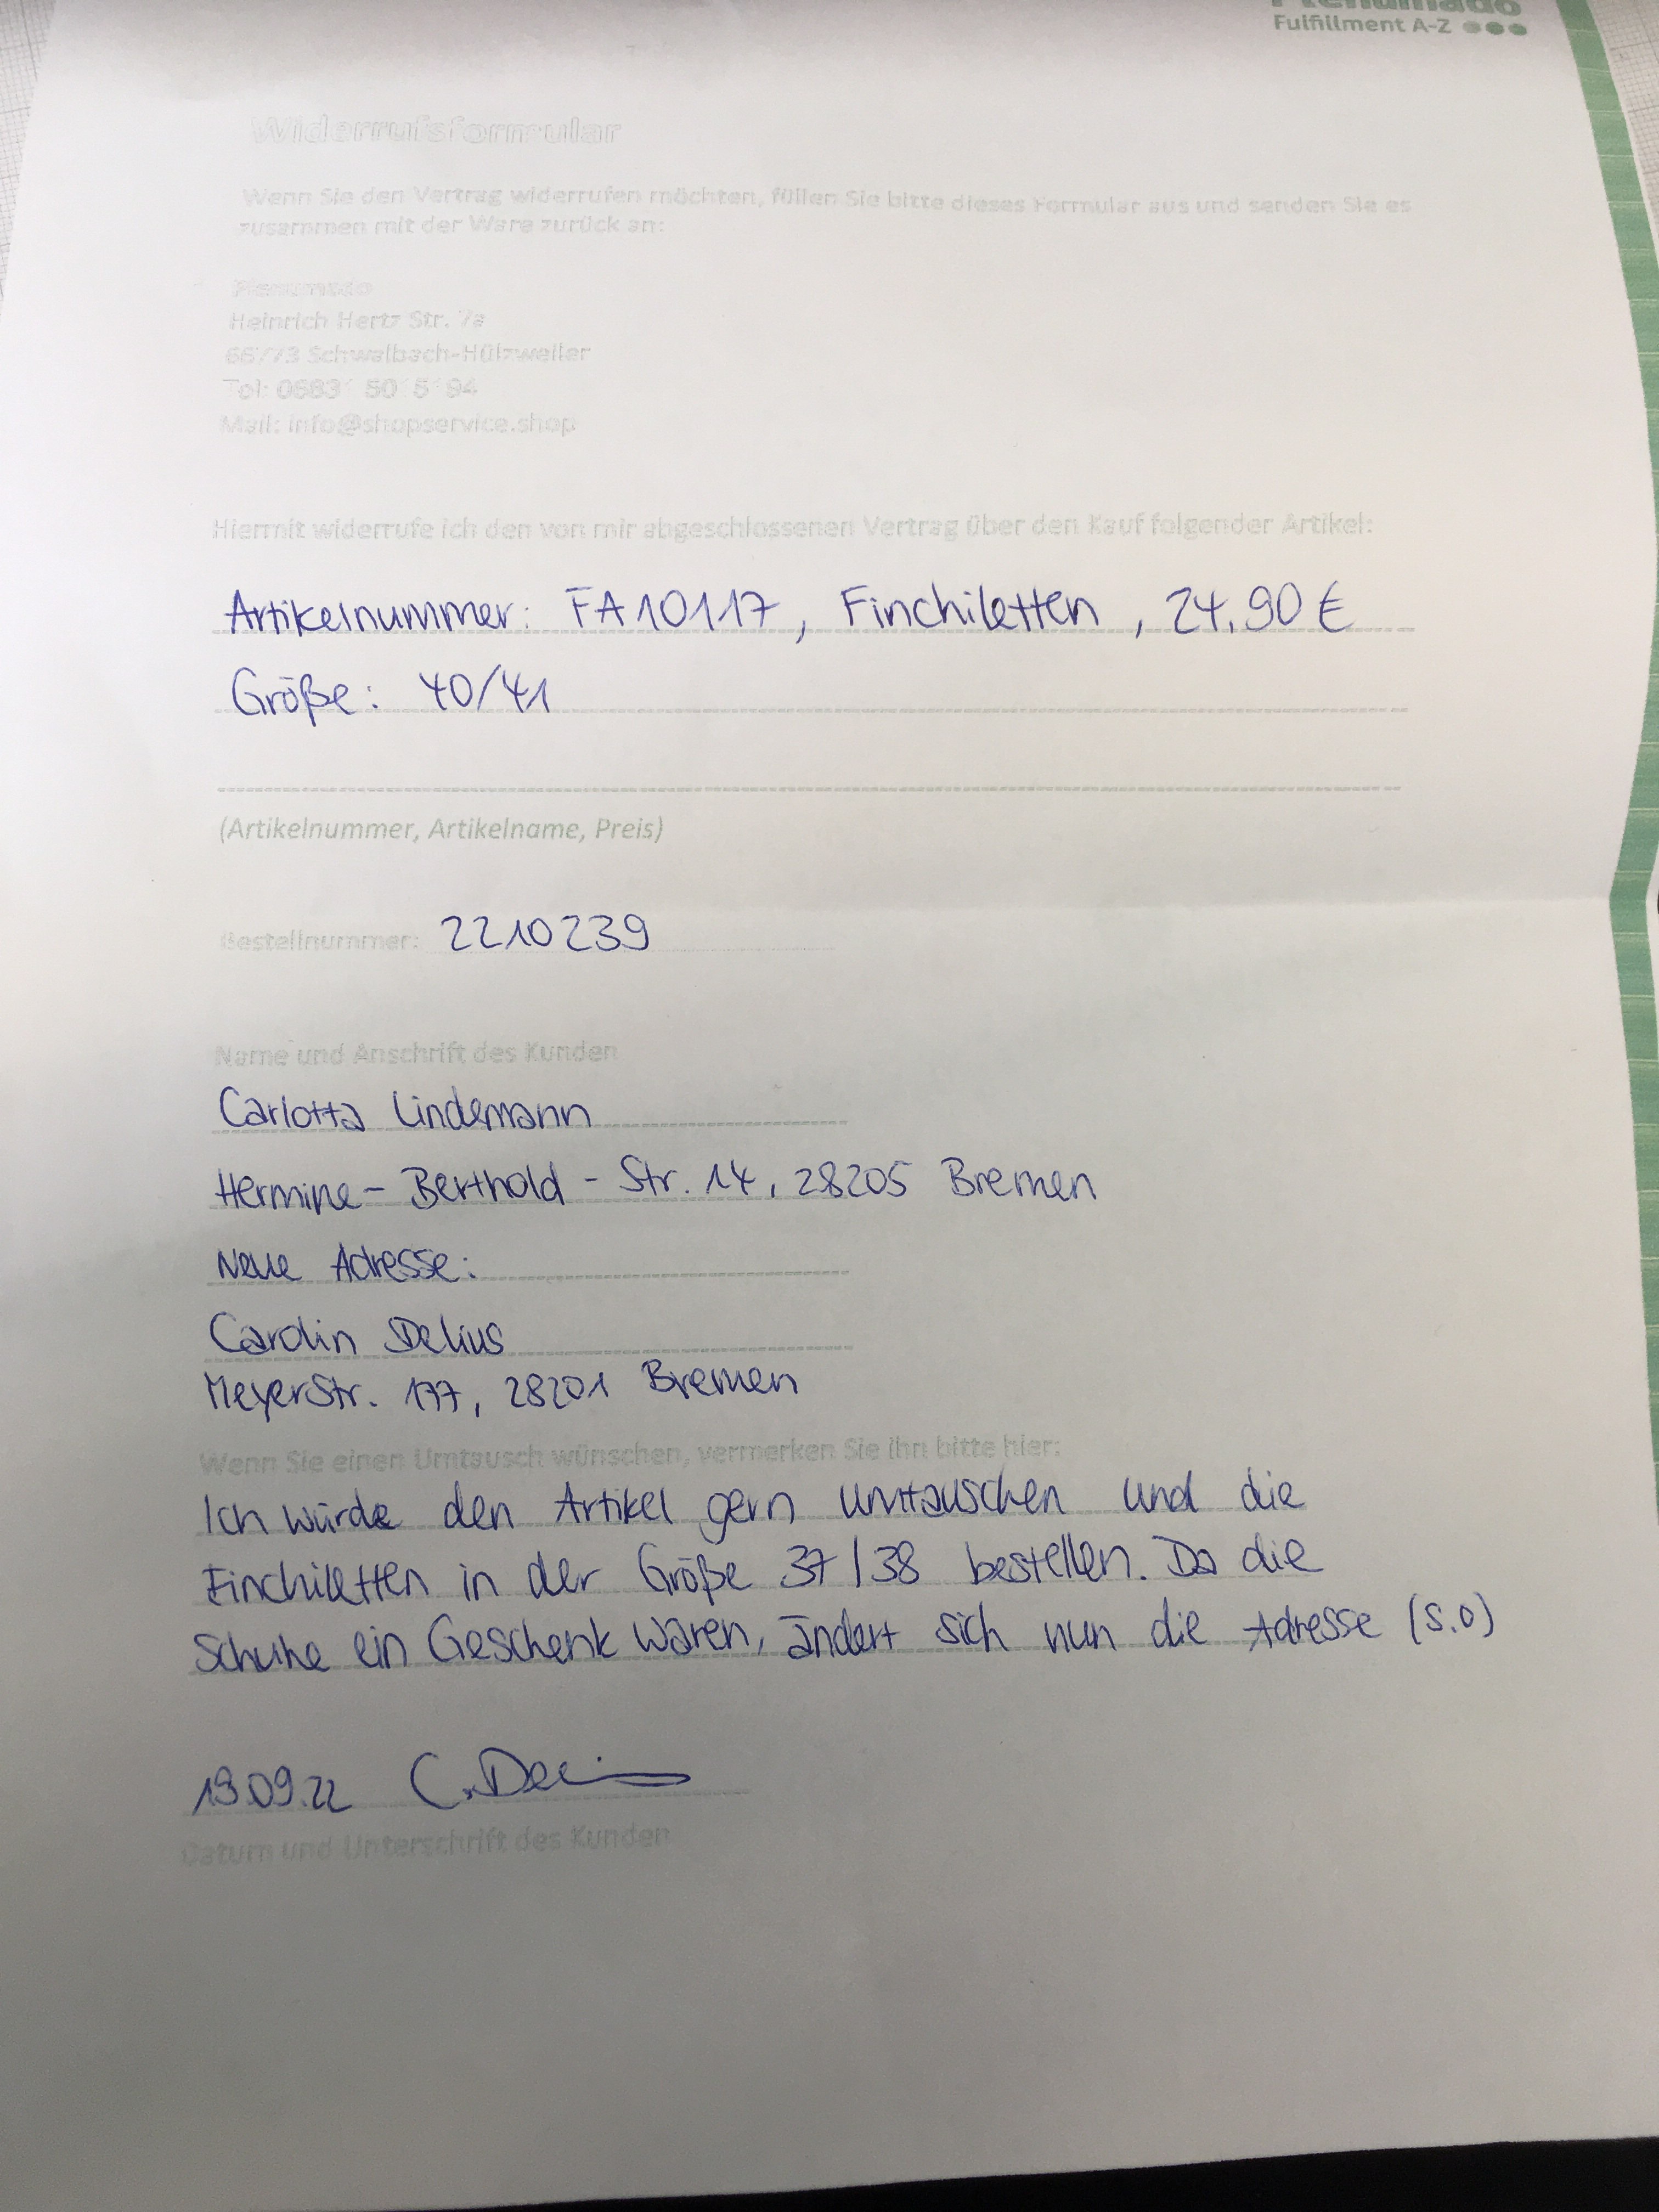 Fulfillment A-Z
Widerrufsformular
Wenn Sie den Vertrag widerrufen möchten, füllen Sie bitte dieses Formular aus und senden Sie es
zusammen mit der Ware zurück an:
Heinrich Hertz Str. 7a
66773 Schwalbach-Hülzweiler
Mail: info@shopservice.shop
Hiermit widerrufe ich den von mir abgeschlossenen Vertrag über den Kauf folgender Artikel:
Artikelnummer: FA10117, Finchiletten, 24,90€
Größe: 40/41
(Artikelnummer, Artikelname, Preis)
Bestellnummer: 2210239
Name und Anschrift des Kunden
Carlotta Lindemann
Hermine-Berthold-Str. 14, 28205 Bremen
Neue Adresse:
Carolin Delius
Meyerstr. 177, 28201 Bremen
Wenn Sie einen Umtausch wünschen, vermerken Sie ihn bitte hier:
Ich würde den Artikel gern umtauschen und die
Finchiletten in der Größe 37/38 bestellen. Da die
Schuhe ein Geschenk waren, ändert sich nun die Adresse (s.o)
19.09.22 C. Delius
Datum und Unterschrift des Kunden